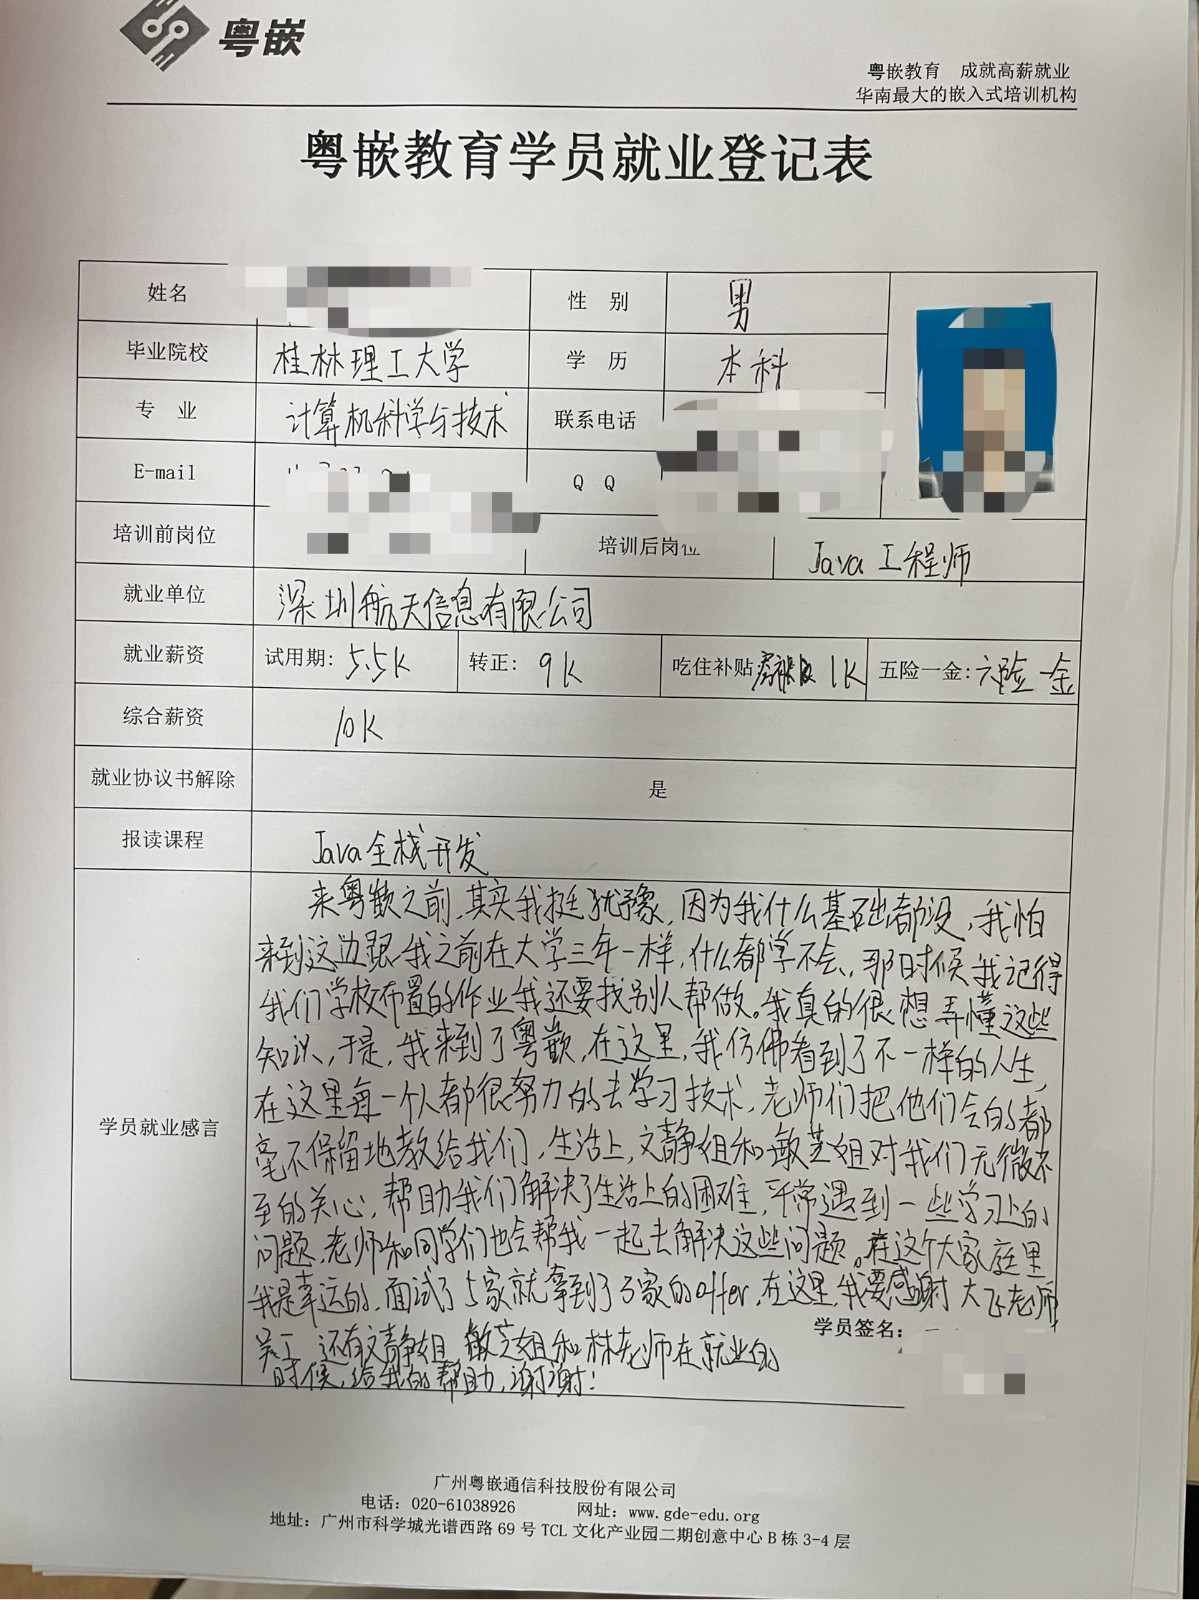 粤嵌
粤嵌教育 成就高薪就业
华南最大的嵌入式培训机构
粤嵌教育学员就业登记表
姓名 性 别 男
毕业院校 桂林理工大学 学 历 本科
专 业 计算机科学与技术 联系电话
E-mail Q Q
培训前岗位 培训后岗位 Java 工程师
就业单位 深圳航天信息有限公司
就业薪资 试用期: 5.5K 转正: 9K 吃住补贴 1K 五险一金: 六险一金
综合薪资 10K
就业协议书解除 是
报读课程 Java全栈开发
学员就业感言
来粤嵌之前,其实我挺犹豫,因为我什么基础都没,我怕
来到这边跟我之前在大学三年一样,什么都学不会,那时候我记得
我们学校布置的作业我还要找别人帮做。我真的很想弄懂这些
知识,于是,我来到了粤嵌,在这里,我仿佛看到了不一样的人生,
在这里每一个人都很努力的去学习技术,老师们把他们会的都
毫不保留地教给我们,生活上,文静姐和敏芝姐对我们无微不
至的关心,帮助我们解决了生活上的困难,平常遇到一些学习上的
问题,老师和同学们也会帮我一起去解决这些问题。在这个大家庭里
我是幸运的,面试了5家就拿到了3家的offer,在这里,我要感谢大飞老师
吴工 还有文静姐 敏芝姐和林老师在就业的
时候,给我的帮助,谢谢!
学员签名:
广州粤嵌通信科技股份有限公司
电话: 020-61038926 网址: www.gde-edu.org
地址: 广州市科学城光谱西路 69 号 TCL 文化产业园二期创意中心 B 栋 3-4 层